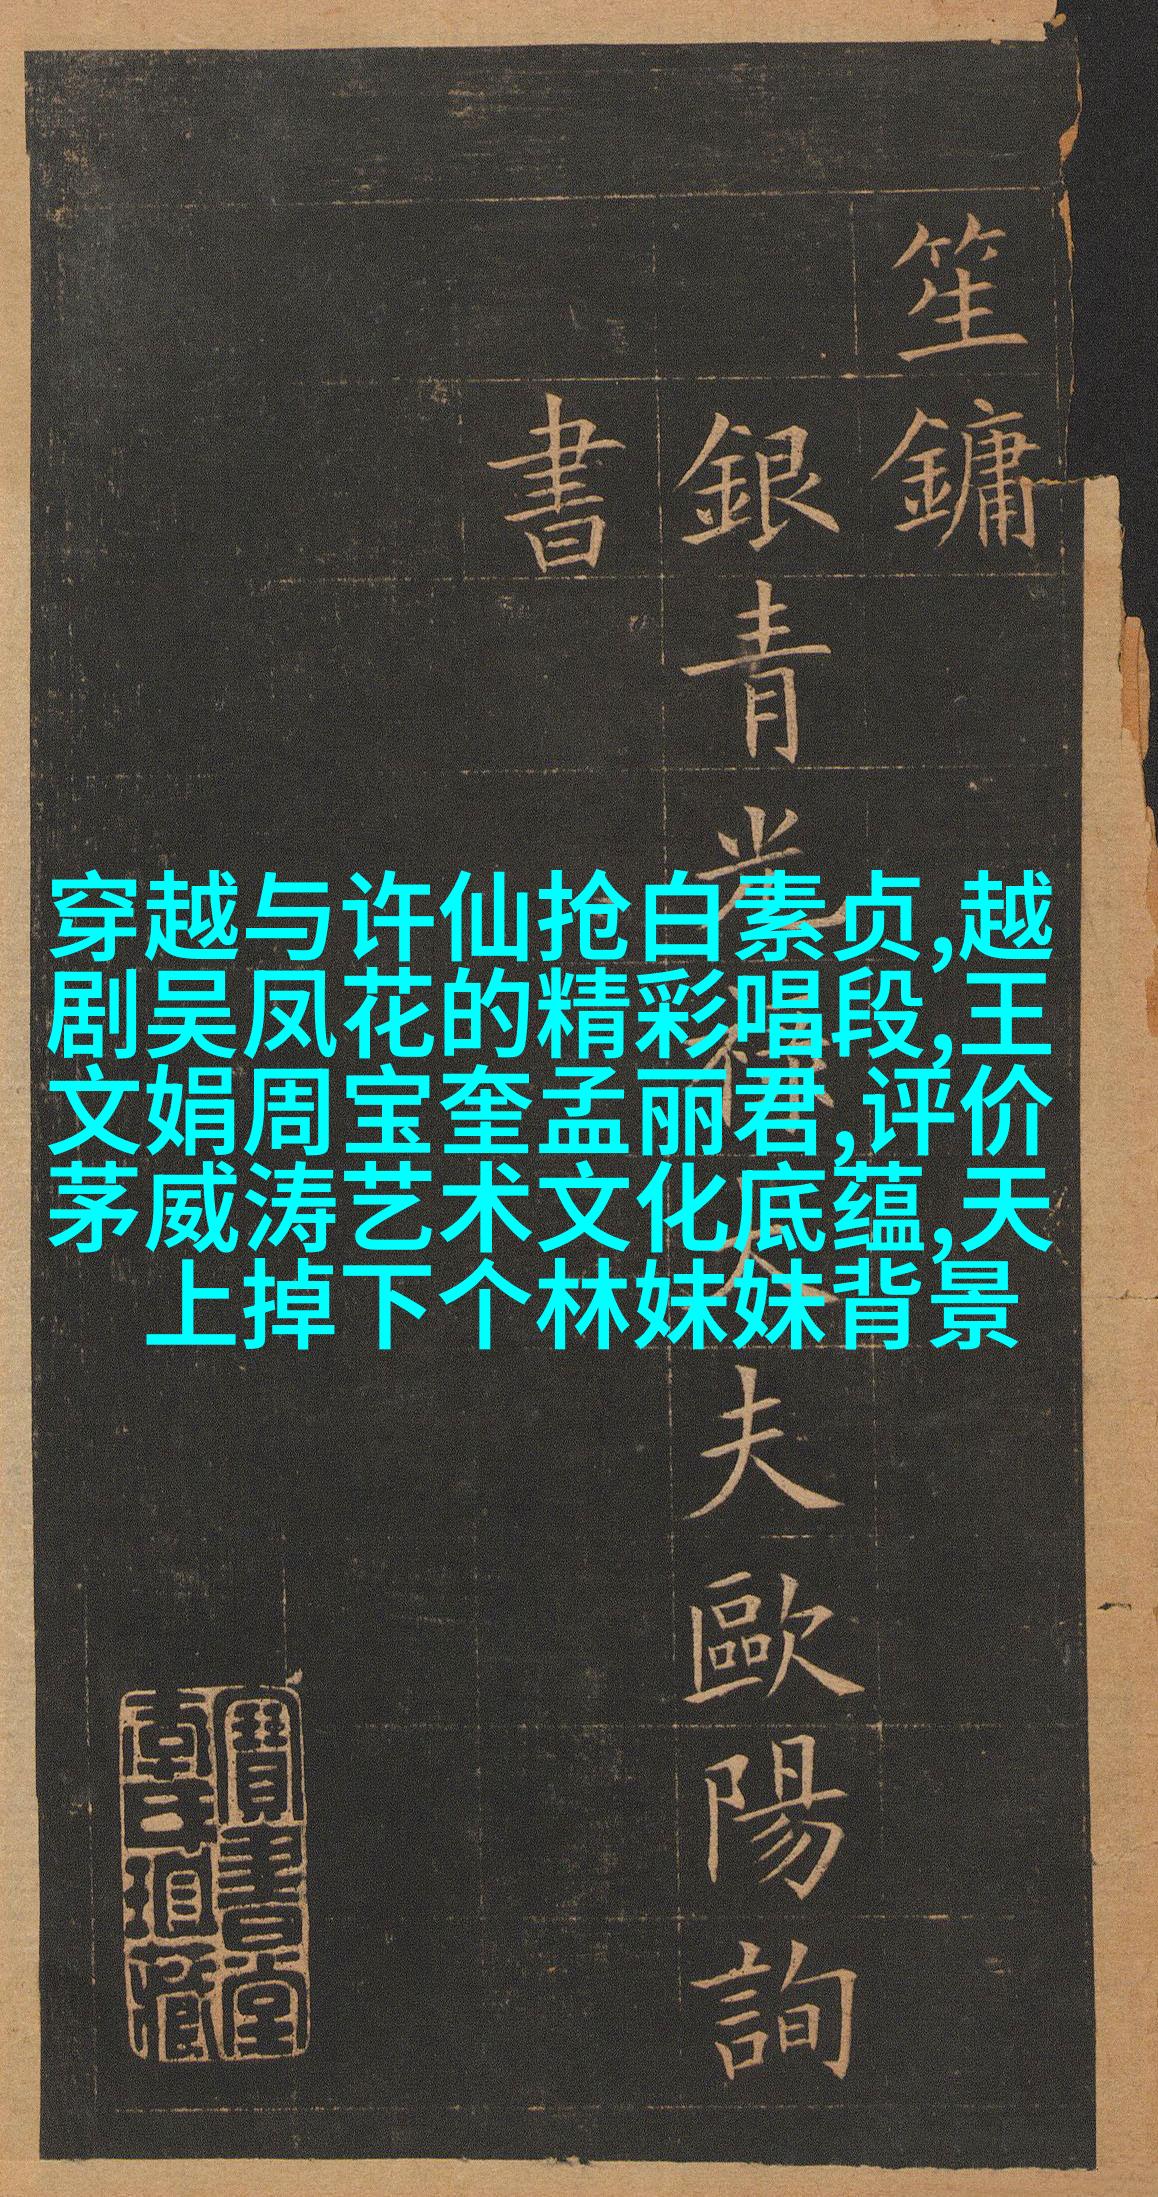 笙鏞
銀青光禄大夫歐陽詢
書
穿越与许仙抢白素贞,越
剧吴凤花的精彩唱段,王
文娟周宝奎孟丽君,评价
茅威涛艺术文化底蕴,天
上掉下个林妹妹背景